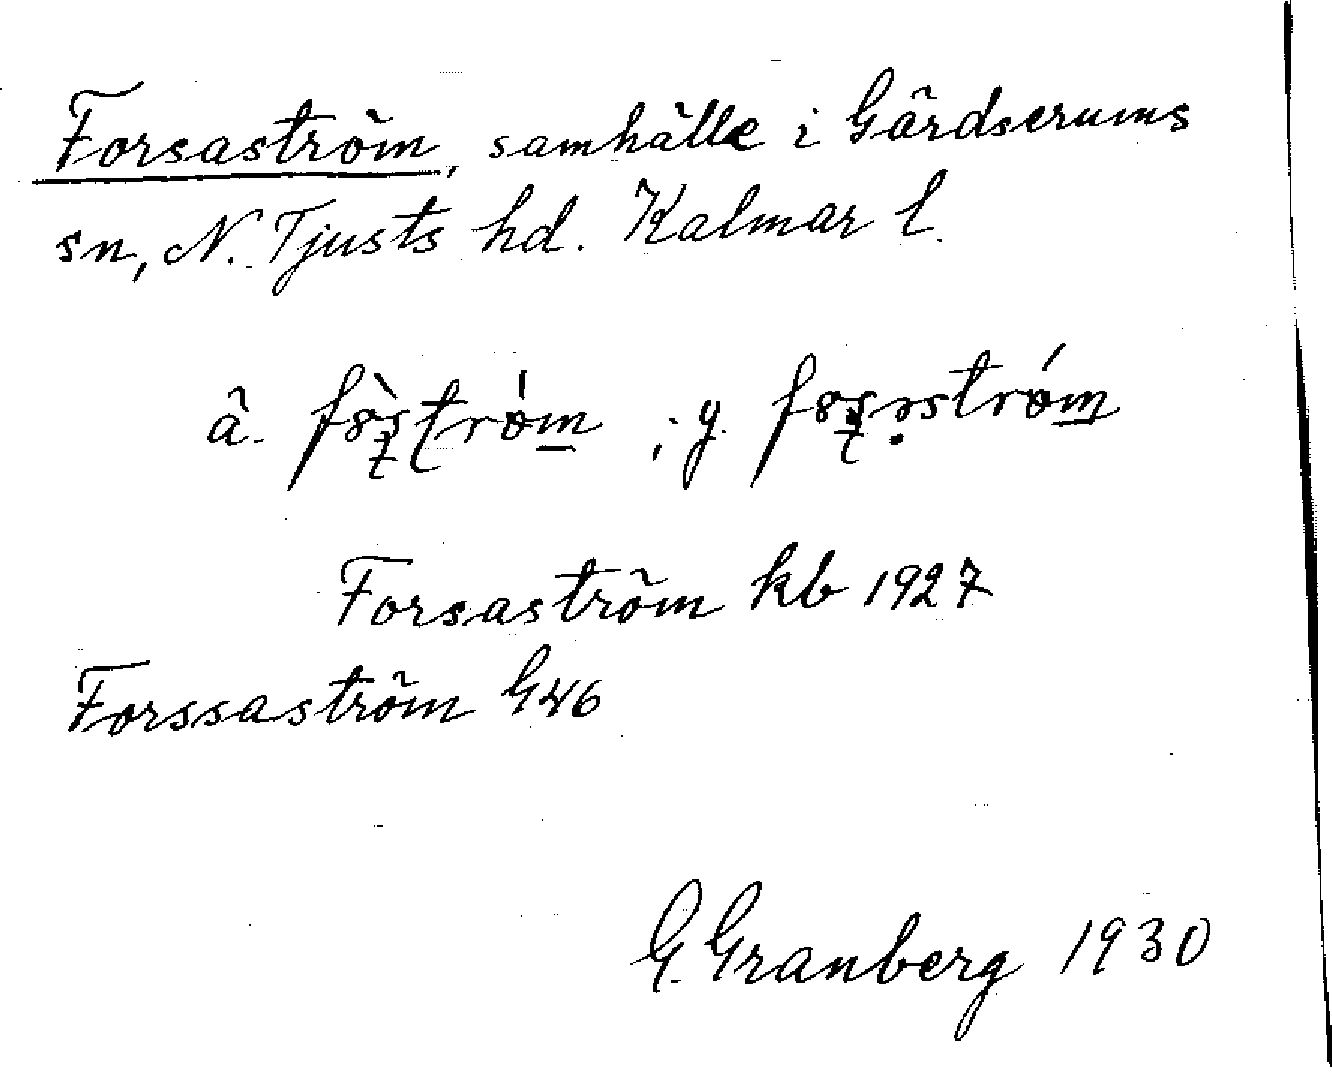 Forsaström, samhälle i Gårdserums
sn, N. Tjusts hd. Kalmar l.
å. ; y.
Forsaström kb 1927
Forssaström G46
G. Granberg 1930